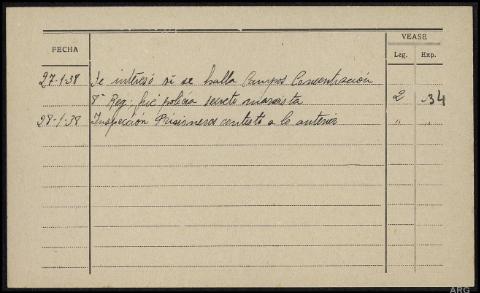 FECHA
VEASE
Leg. Exp.
27-1-38 Se interesó si se halla Campos Concentración
8ª Reg. fué policía secreto marxista 2 34
28-1-38 Inspección Prisioneros contesta a lo anterior " "
ARG